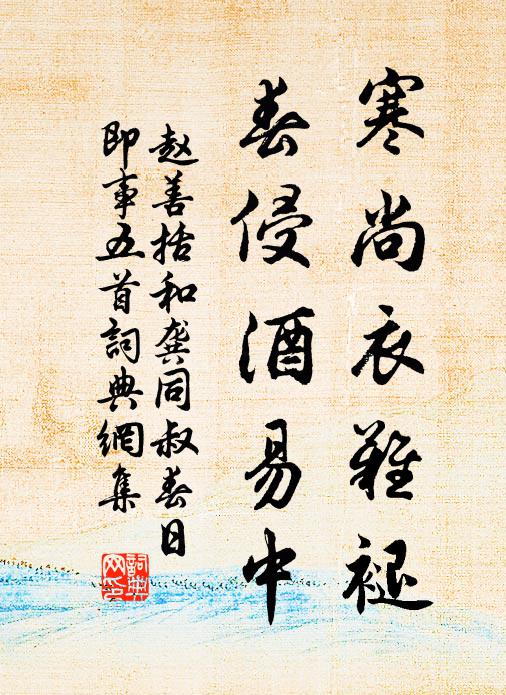 寒尚衣難褪
春侵酒易中
赵善括和龚同叔春日
即事五首詞典網集
詞典
网印